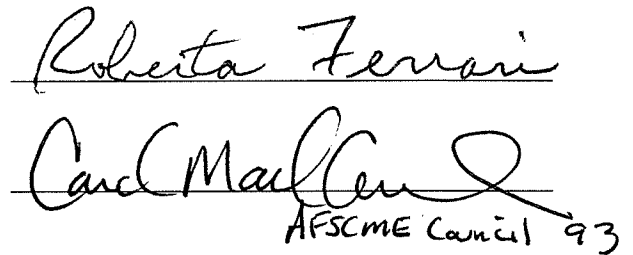 Roberta Ferrari
Carol
AFSCME Council 93